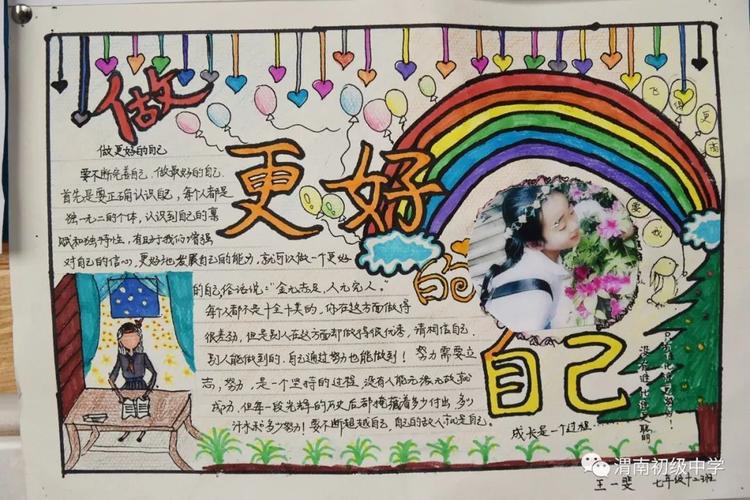 做
更好
的
自己
做更好的自己
要不断完善自己，做最好的自己.
首先是要正确认识自己，每个人都是
独一无二的个体，认识到自己的禀
赋和独特性，有助于我们增强
对自己的信心，更好地发展自己的能力，就可以做一个更好
的自己俗话说："金无足赤，人无完人."
每个人都不是十全十美的，你在这方面做得
很差劲，但是别人在这方面却做得很优秀，请相信自己，
别人能做到的，自己通过努力也能做到！努力需要立
志，努力，是一个坚持的过程，没有人能无缘无故就
成功，但每一段光辉的历史后都掩藏着多少付出，多少
汗水和多少努力！要不断超越自己，自己的敌人就是自己.
飞
得
更
高
要
我
成长是一个过程……
王一斐
七年级十二班
渭南初级中学